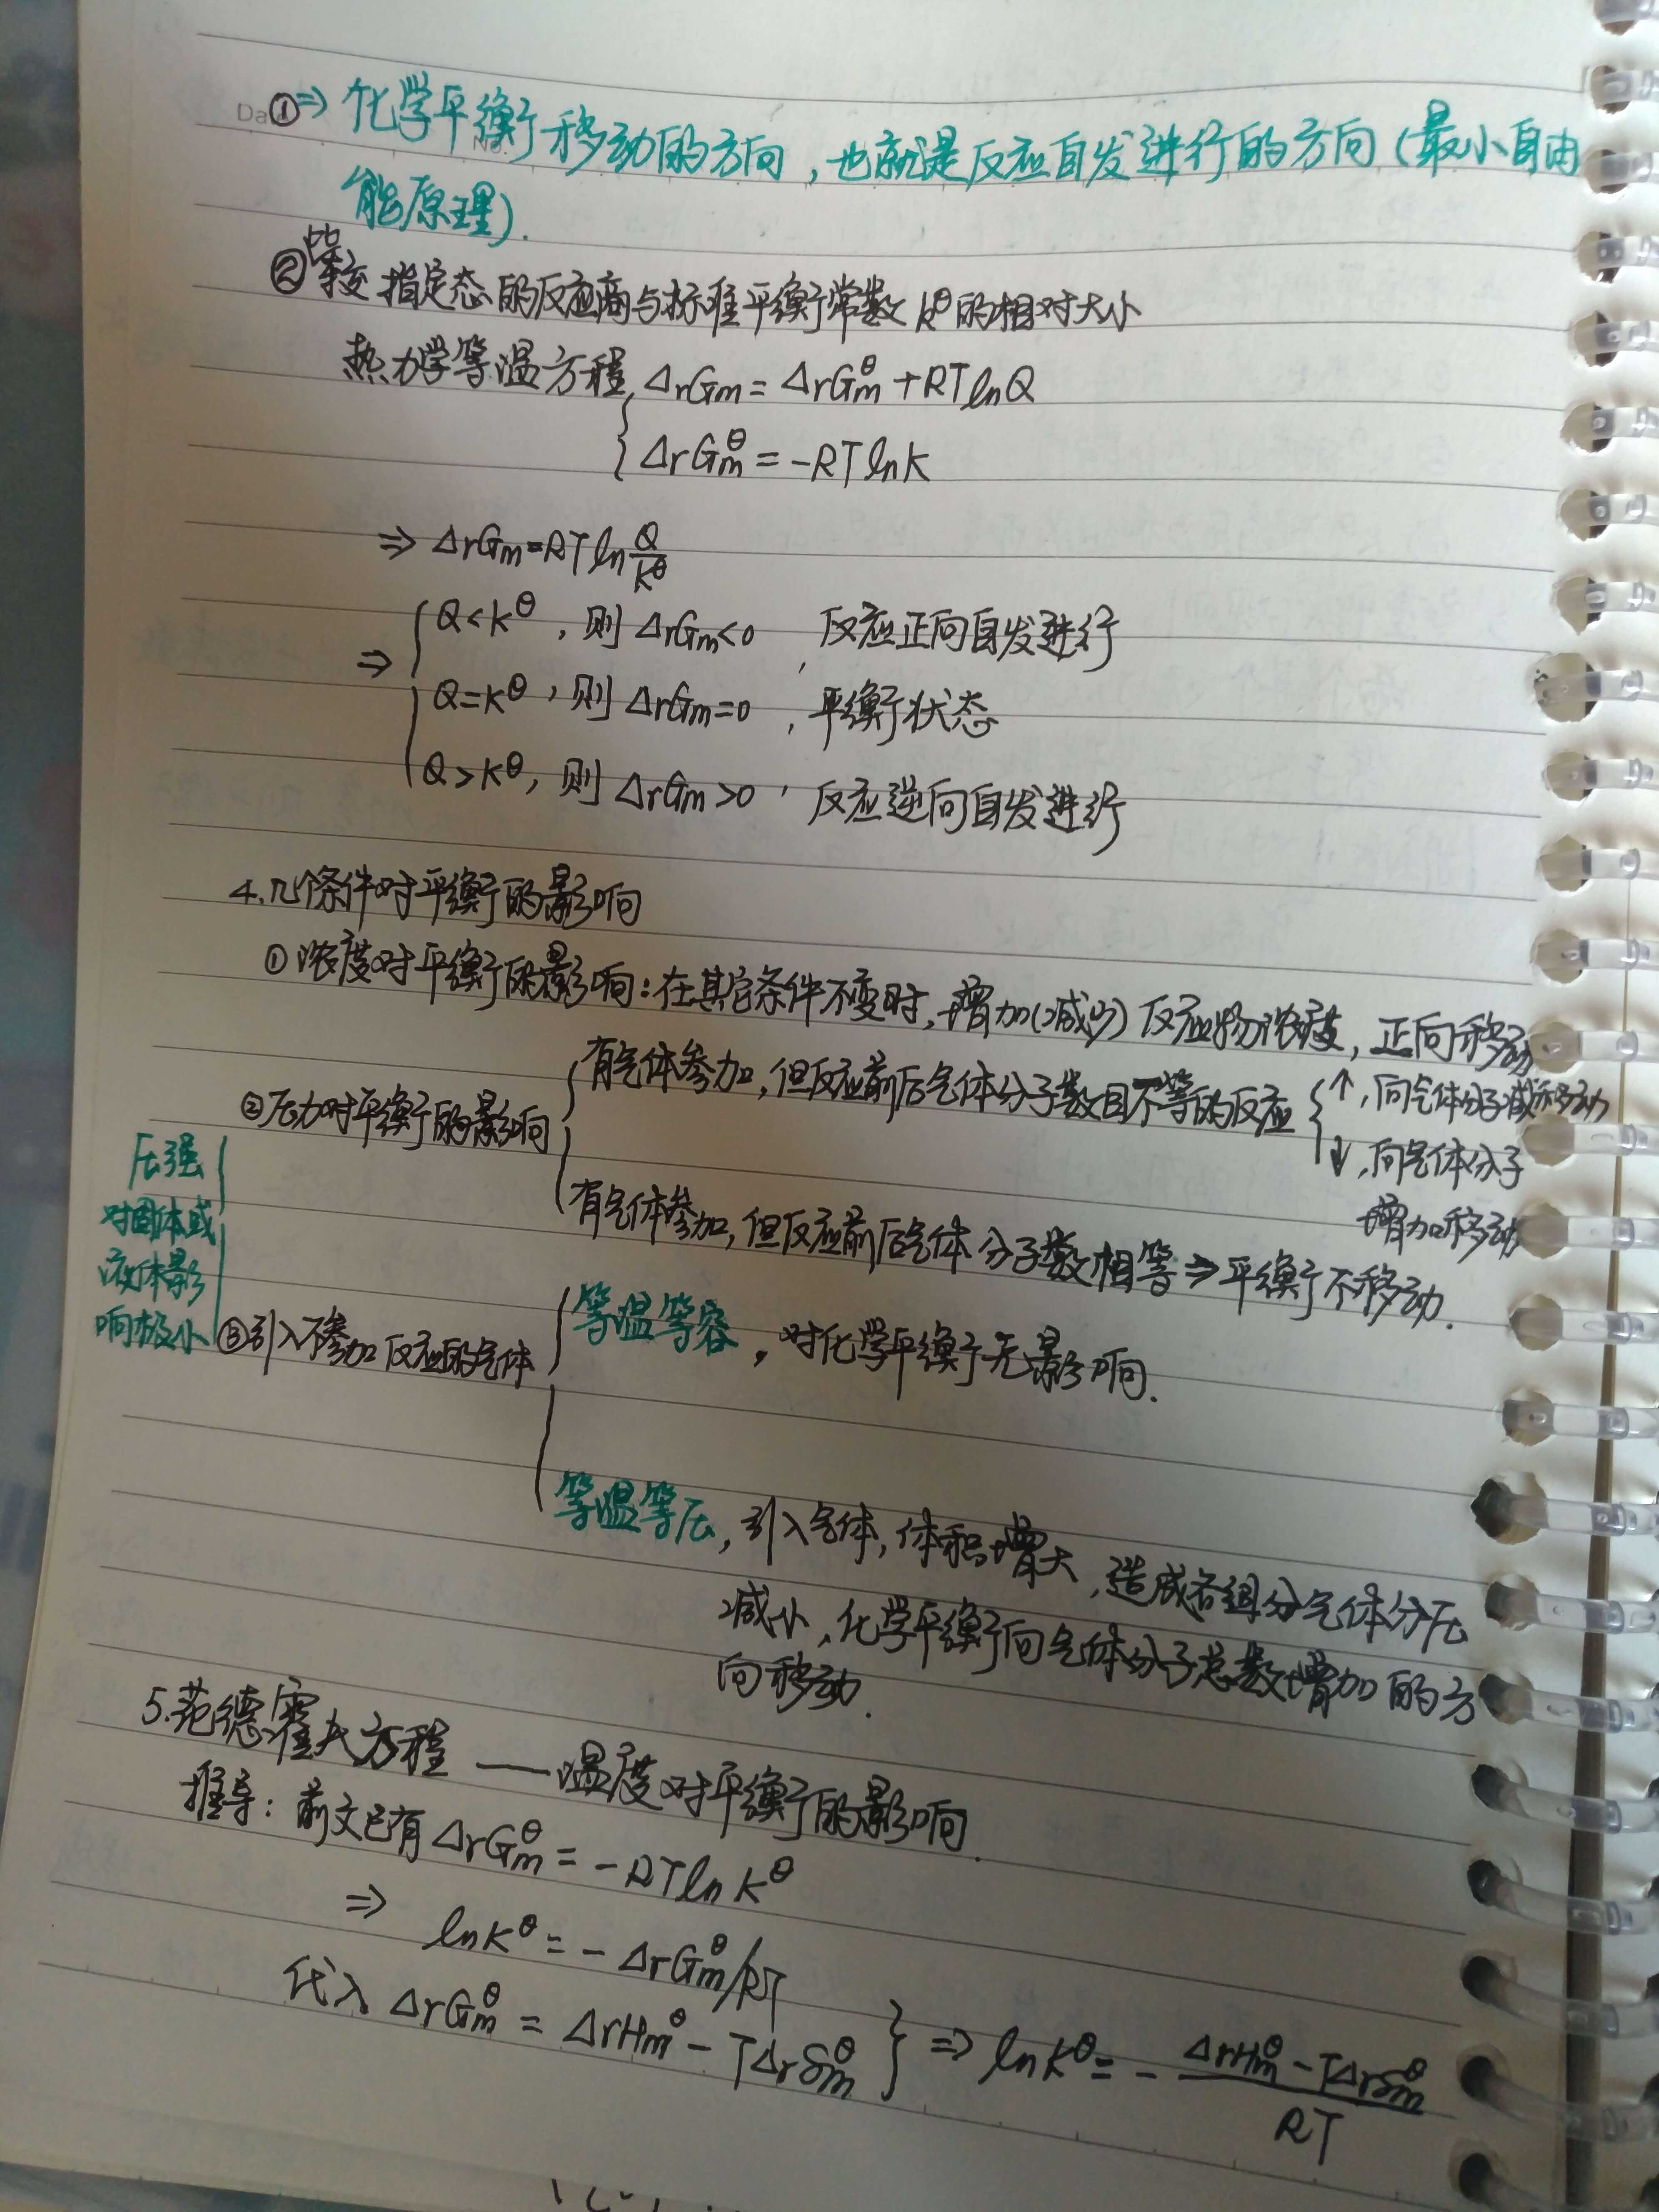 ①⇒ 化学平衡移动的方向，也就是反应自发进行的方向（最小自由
能原理）.
②比较指定态的反应商与标准平衡常数K^θ的相对大小
热力学等温方程 ΔrGm = ΔrGm^θ + RT ln Q
{ ΔrGm^θ = -RT ln K
⇒ ΔrGm = RT ln Q/K^θ
⇒ { Q < K^θ，则 ΔrGm < 0，反应正向自发进行
Q = K^θ，则 ΔrGm = 0，平衡状态
Q > K^θ，则 ΔrGm > 0，反应逆向自发进行
4.几个条件对平衡的影响
①浓度对平衡的影响：在其它条件不变时，增加(减少)反应物浓度，正向移动
②压力对平衡的影响 { 有气体参加，但反应前后气体分子数目不等的反应 { ↑，向气体分子减小移动
↓，向气体分子
增加移动
有气体参加，但反应前后气体分子数相等⇒平衡不移动.
压强
对固体或
液体影
响极小
③引入不参加反应的气体 { 等温等容，对化学平衡无影响.
等温等压，引入气体，体积增大，造成各组分气体分压
减小，化学平衡向气体分子总数增加的方
向移动.
5.范德霍夫方程 —— 温度对平衡的影响.
推导：前文已有 ΔrGm^θ = -RT ln K^θ
⇒ ln K^θ = - ΔrGm^θ/RT
代入 ΔrGm^θ = ΔrHm^θ - TΔrSm^θ } ⇒ ln K^θ = - (ΔrHm^θ - TΔrSm^θ)/RT